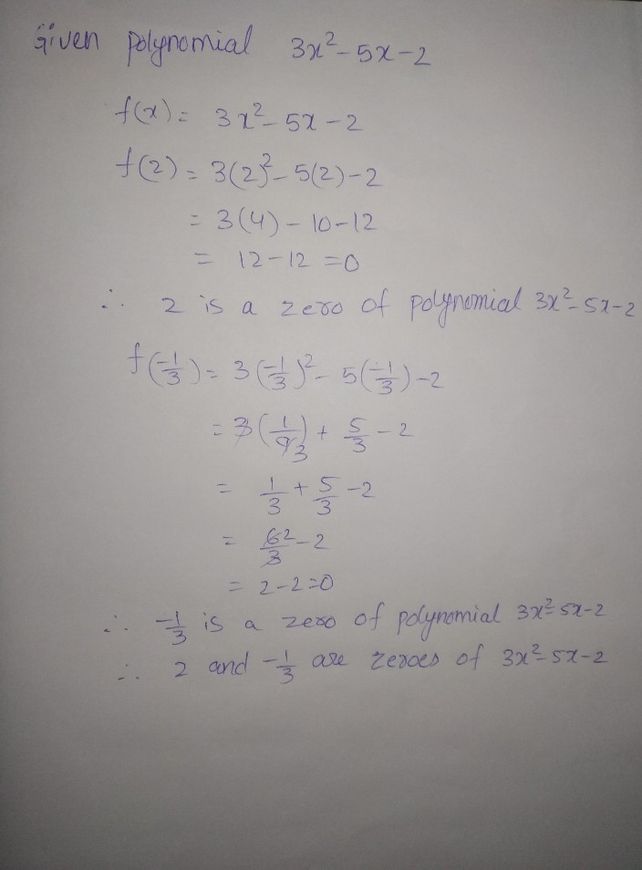 Given polynomial 3x²-5x-2
f(x) = 3x²-5x-2
f(2) = 3(2)²-5(2)-2
= 3(4)-10-12
= 12-12=0
∴ 2 is a zero of polynomial 3x²-5x-2
f(-1/3) = 3(-1/3)²-5(-1/3)-2
= 3(1/9 3)+5/3-2
= 1/3+5/3-2
= 6 2/3-2
= 2-2=0
∴ -1/3 is a zero of polynomial 3x²-5x-2
∴ 2 and -1/3 are zeroes of 3x²-5x-2